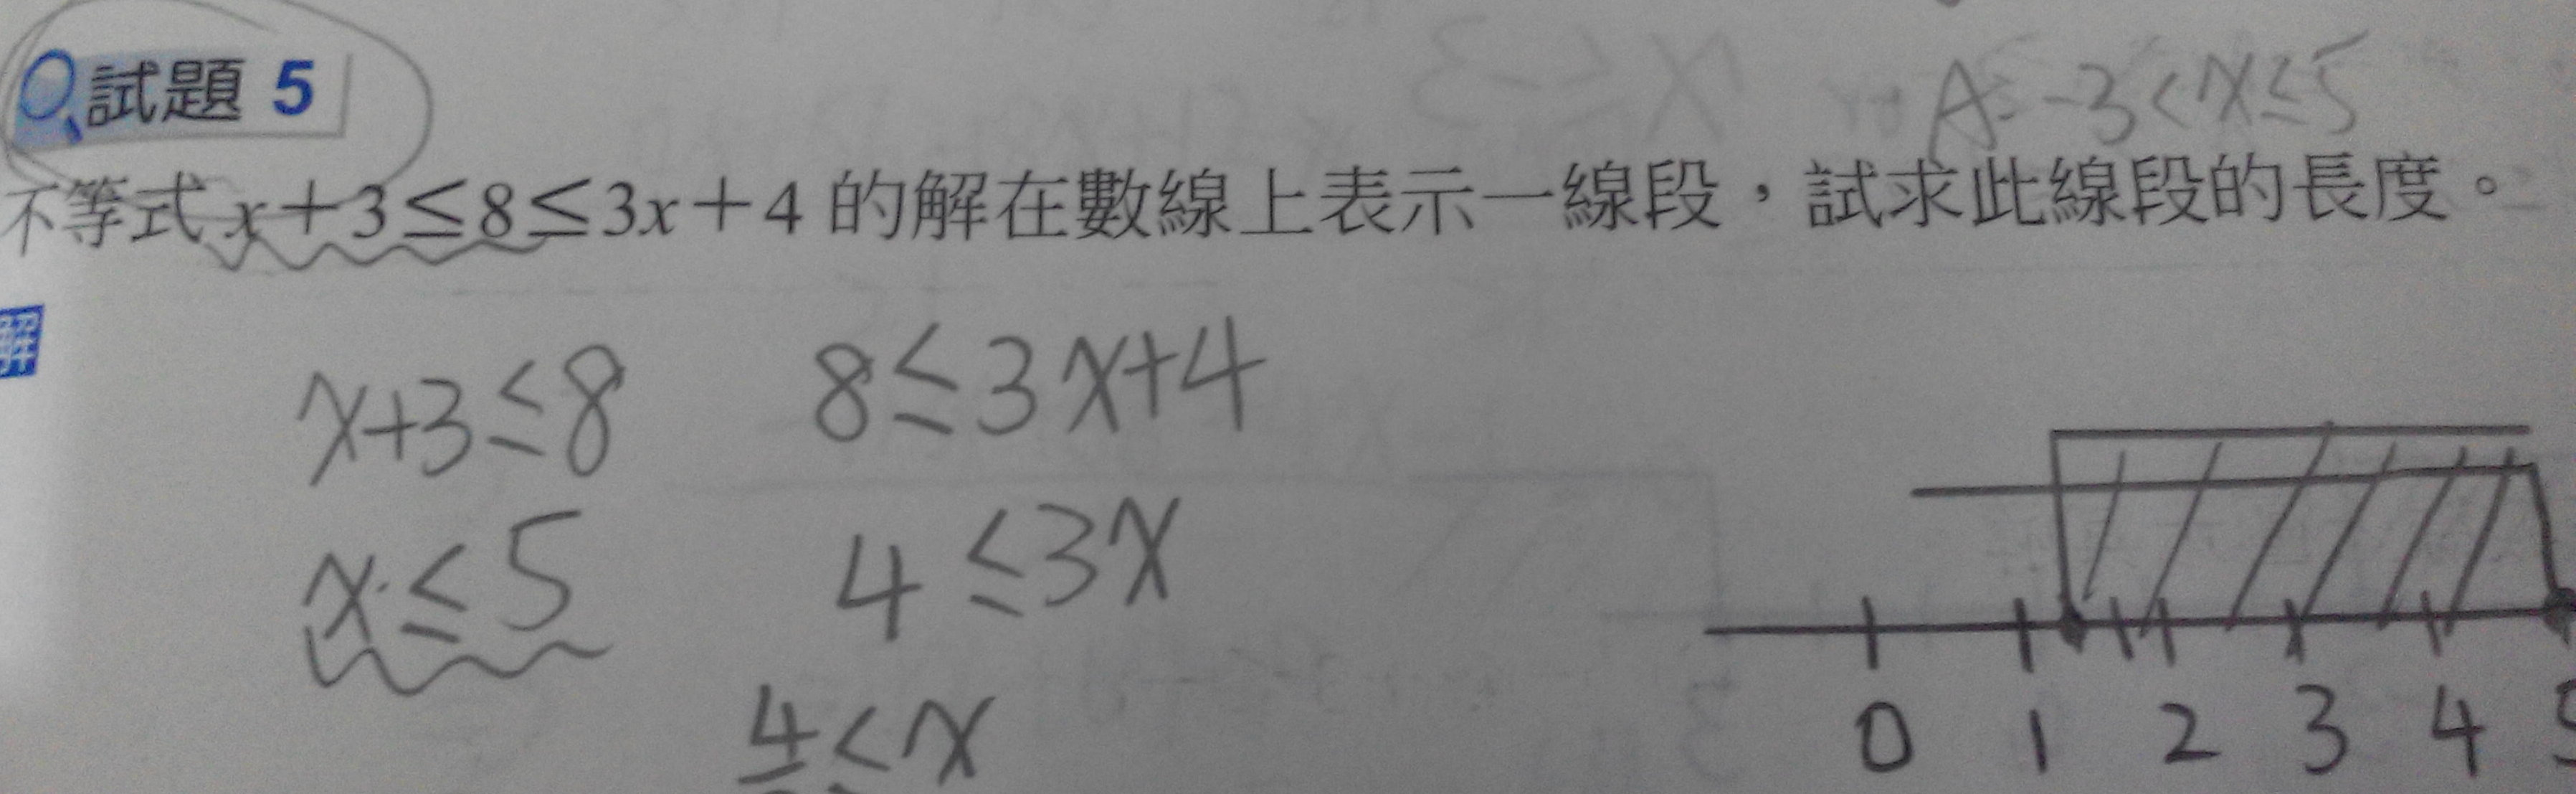 試題 5
A: -3<x≤5
不等式 x+3≤8≤3x+4 的解在數線上表示一線段，試求此線段的長度。
解
x+3≤8 8≤3x+4
x≤5 4≤3x
4≤x
0 1 2 3 4 5